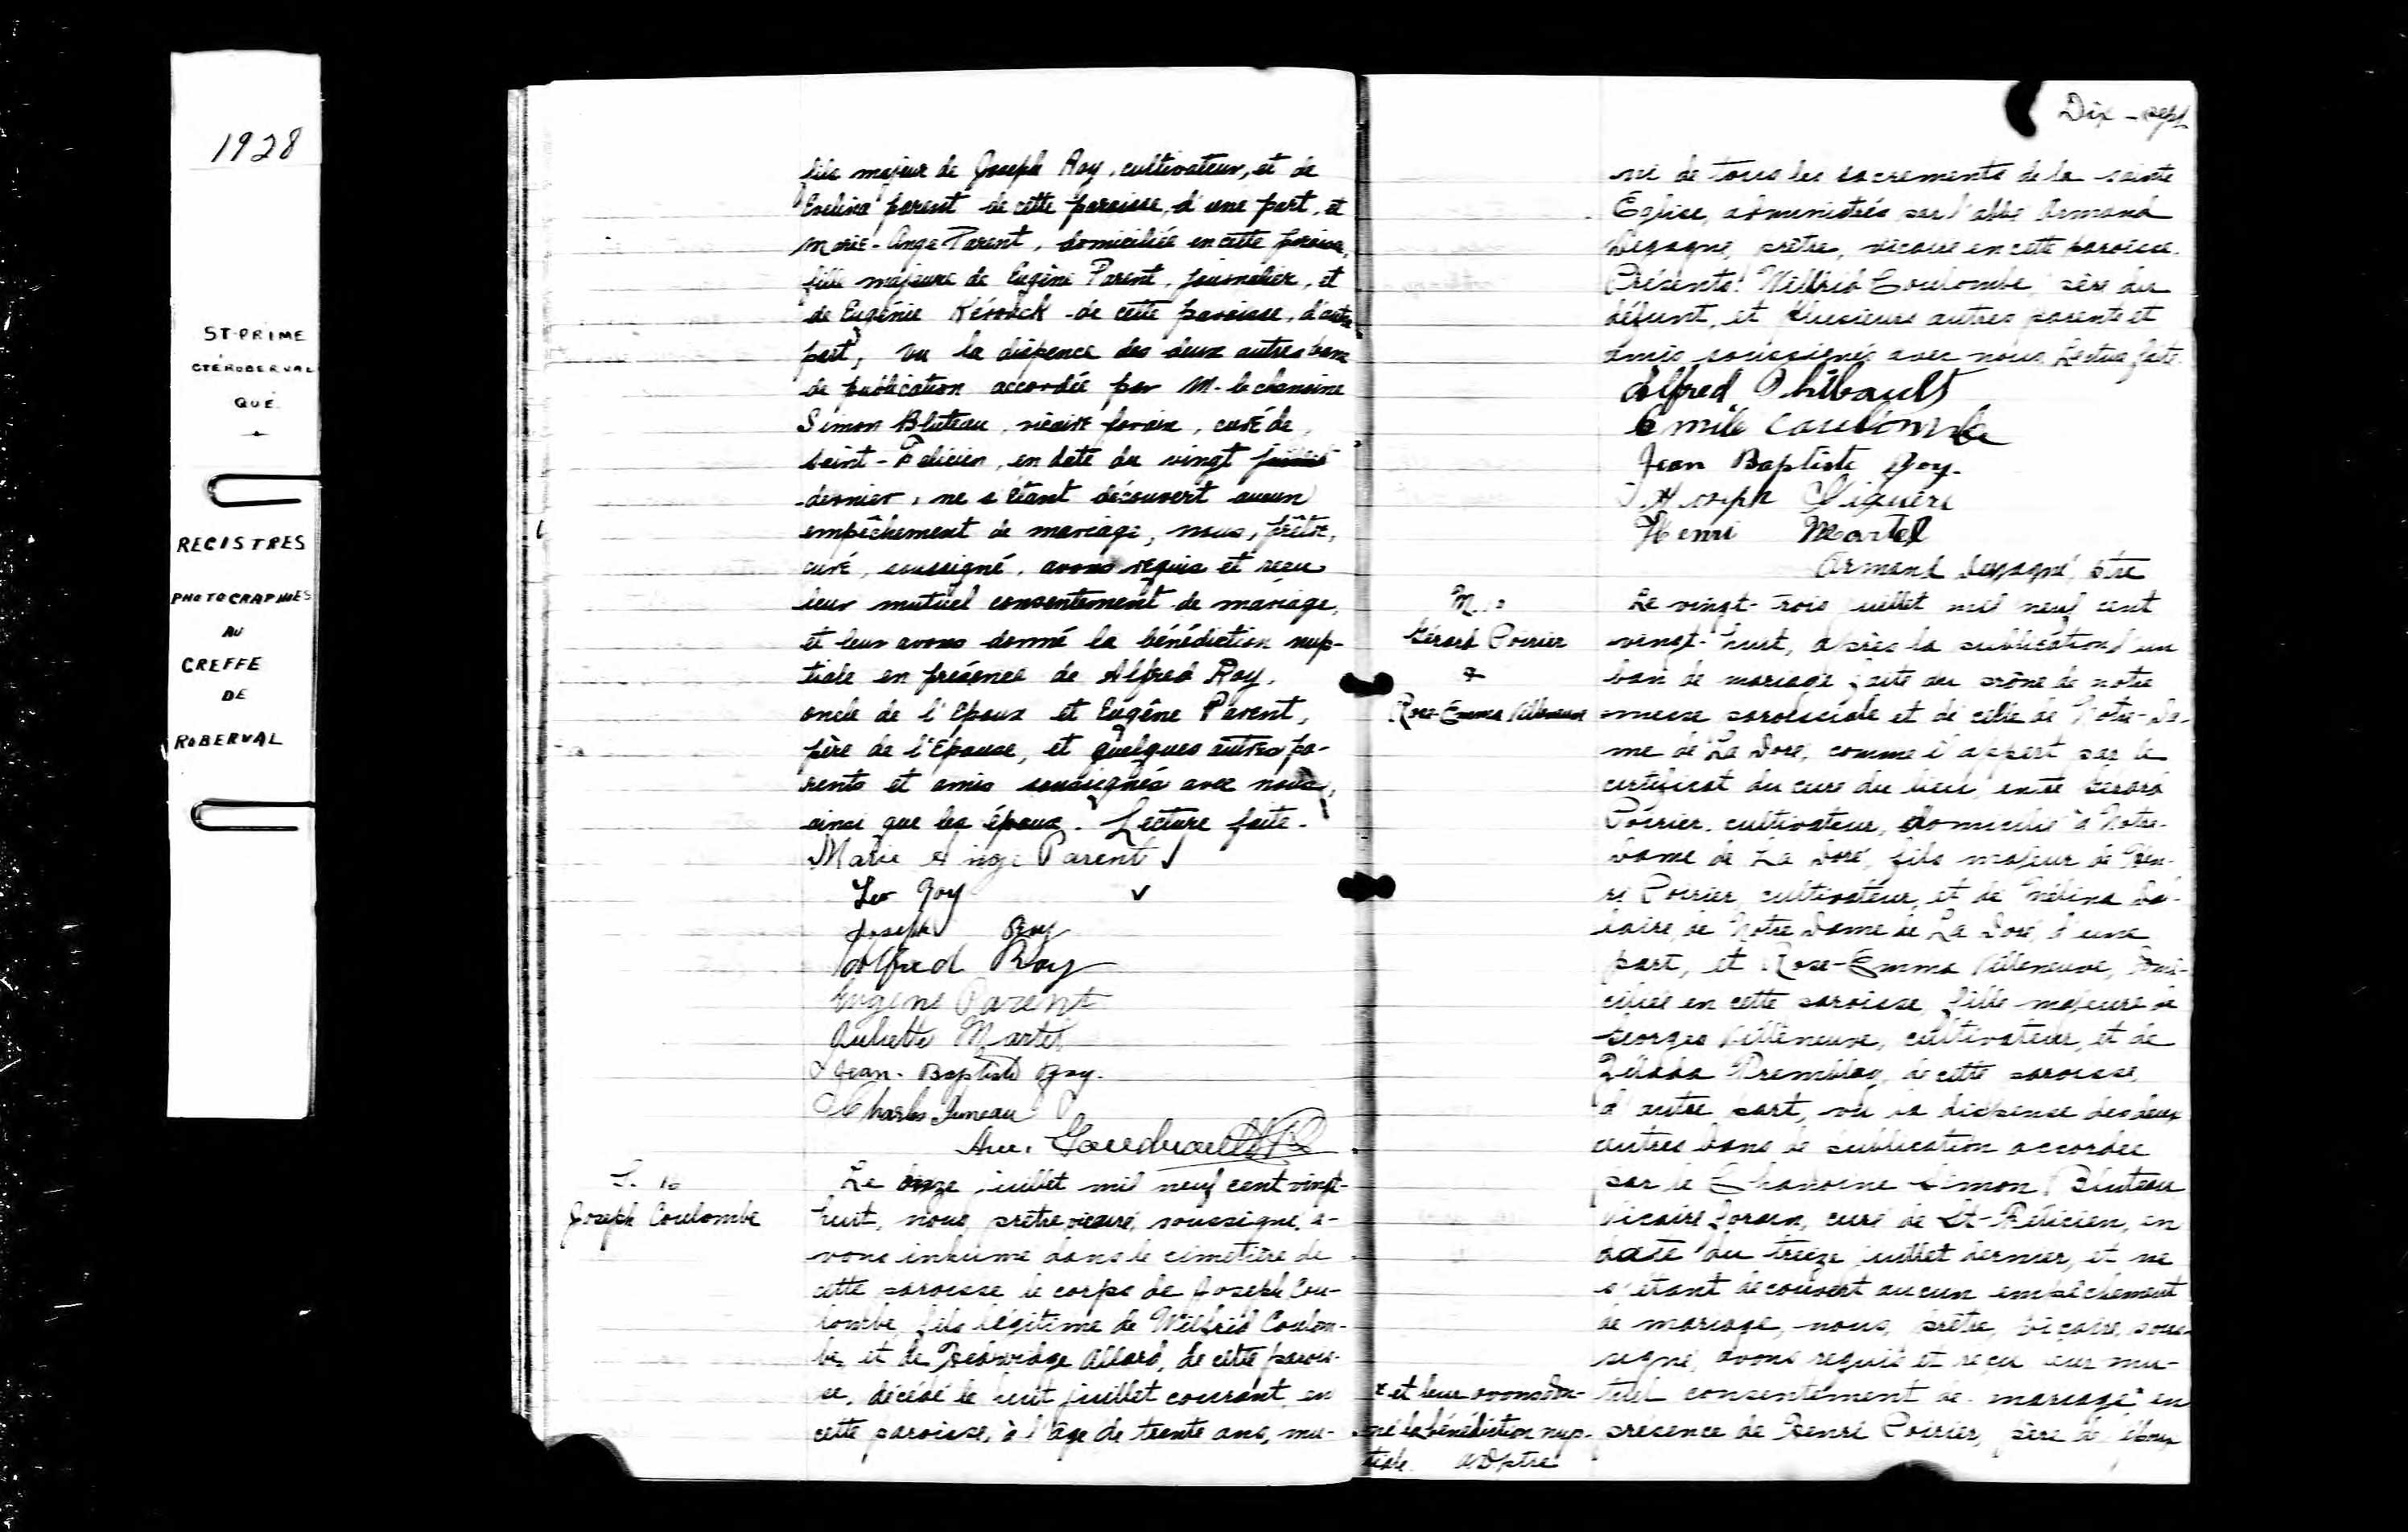 1928
ST-PRIME
CTÉ ROBERVAL
QUÉ.
REGISTRES
PHOTOGRAPHIÉS
AU
GREFFE
DE
ROBERVAL
fils majeur de Joseph Roy, cultivateur, et de
Evelina parent de cette paroisse, d'une part, et
Marie-Ange Parent, domiciliée en cette paroisse,
fille majeure de Eugène Parent, journalier, et
de Eugénie Kérouck de cette paroisse, d'autre
part, vu la dispence des deux autres bans
de publication accordée par M. le chanoine
Simon Bluteau, vicaire forain, curé de
Saint-Félicien, en date du vingt juillet
dernier, ne s'étant découvert aucun
empêchement de mariage, nous, prêtre,
curé, soussigné, avons requis et reçu
leur mutuel consentement de mariage,
et leur avons donné la bénédiction nup-
tiale en présence de Alfred Roy,
oncle de l'Epoux et Eugène Parent,
père de l'Epouse, et quelques autres pa-
rents et amis soussignés avec nous,
ainsi que les époux. Lecture faite.
Marie Ange Parent
Leo Roy
Joseph Roy
Alfred Roy
Eugene Parent
Juliette Martel
Jean-Baptiste Roy.
Charles Juneau
S. 16
Joseph Coulombe
Le onze juillet mil neuf cent vingt-
huit, nous, prêtre vicaire, soussigné, a-
vons inhumé dans le cimetière de
cette paroisse le corps de Joseph Cou-
lombe, fils légitime de Wilfrid Coulom-
be, et de Hedwidge Allard, de cette parois-
se, décédé le huit juillet courant, en
cette paroisse, à l'âge de trente ans, mu-
Dix-sept
ni de tous les sacrements de la sainte
Église, administrés par l'abbé Armand
Degagné, prêtre, vicaire en cette paroisse.
Présents: Wilfrid Coulombe, père du
défunt, et plusieurs autres parents et
amis soussignés avec nous. Lecture faite.
Alfred Thibault
Emile Coulombe
Jean Baptiste Roy.
Joseph Siguere
Henri Martel
Armand Degagné, ptre
M.
Gérard Poirier
&
Rose-Emma Villeneuve
Le vingt-trois juillet mil neuf cent
vingt-huit, après la publication d'un
ban de mariage faite au prône de notre
messe paroissiale et de celle de Notre-Da-
me de La Doré, comme il appert par le
certificat du curé du lieu, entre Gérard
Poirier, cultivateur, domicilié à Notre-
Dame de La Doré, fils majeur de Hen-
ri Poirier, cultivateur, et de Mélina Da-
laire, de Notre Dame de La Doré, d'une
part, et Rose-Emma Villeneuve, domi-
ciliée en cette paroisse, fille majeure de
Georges Villeneuve, cultivateur, et de
Zélada Tremblay, de cette paroisse,
d'autre part, vu la dispense des deux
autres bans de publication accordée
par le Chanoine Simon Bluteau
vicaire forain, curé de St-Félicien, en
date du treize juillet dernier, et ne
s'étant découvert aucun empêchement
de mariage, nous, prêtre, vicaire, sous-
signé, avons requis et reçu leur mu-
tuel consentement de mariage x en
présence de Henri Poirier, père de l'époux
x et leur avons don-
né la bénédiction nup-
tiale. AD ptre